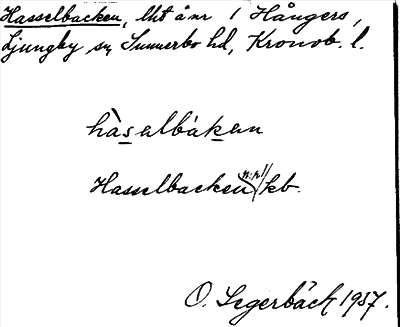 Hasselbacken, lht å nr 1 Hångers,
Ljungby sn, Sunnerbo hd, Kronob. l.
hàsalbákan
Hasselbacken n:r 1/ kb.
O. Segerbäck 1937.